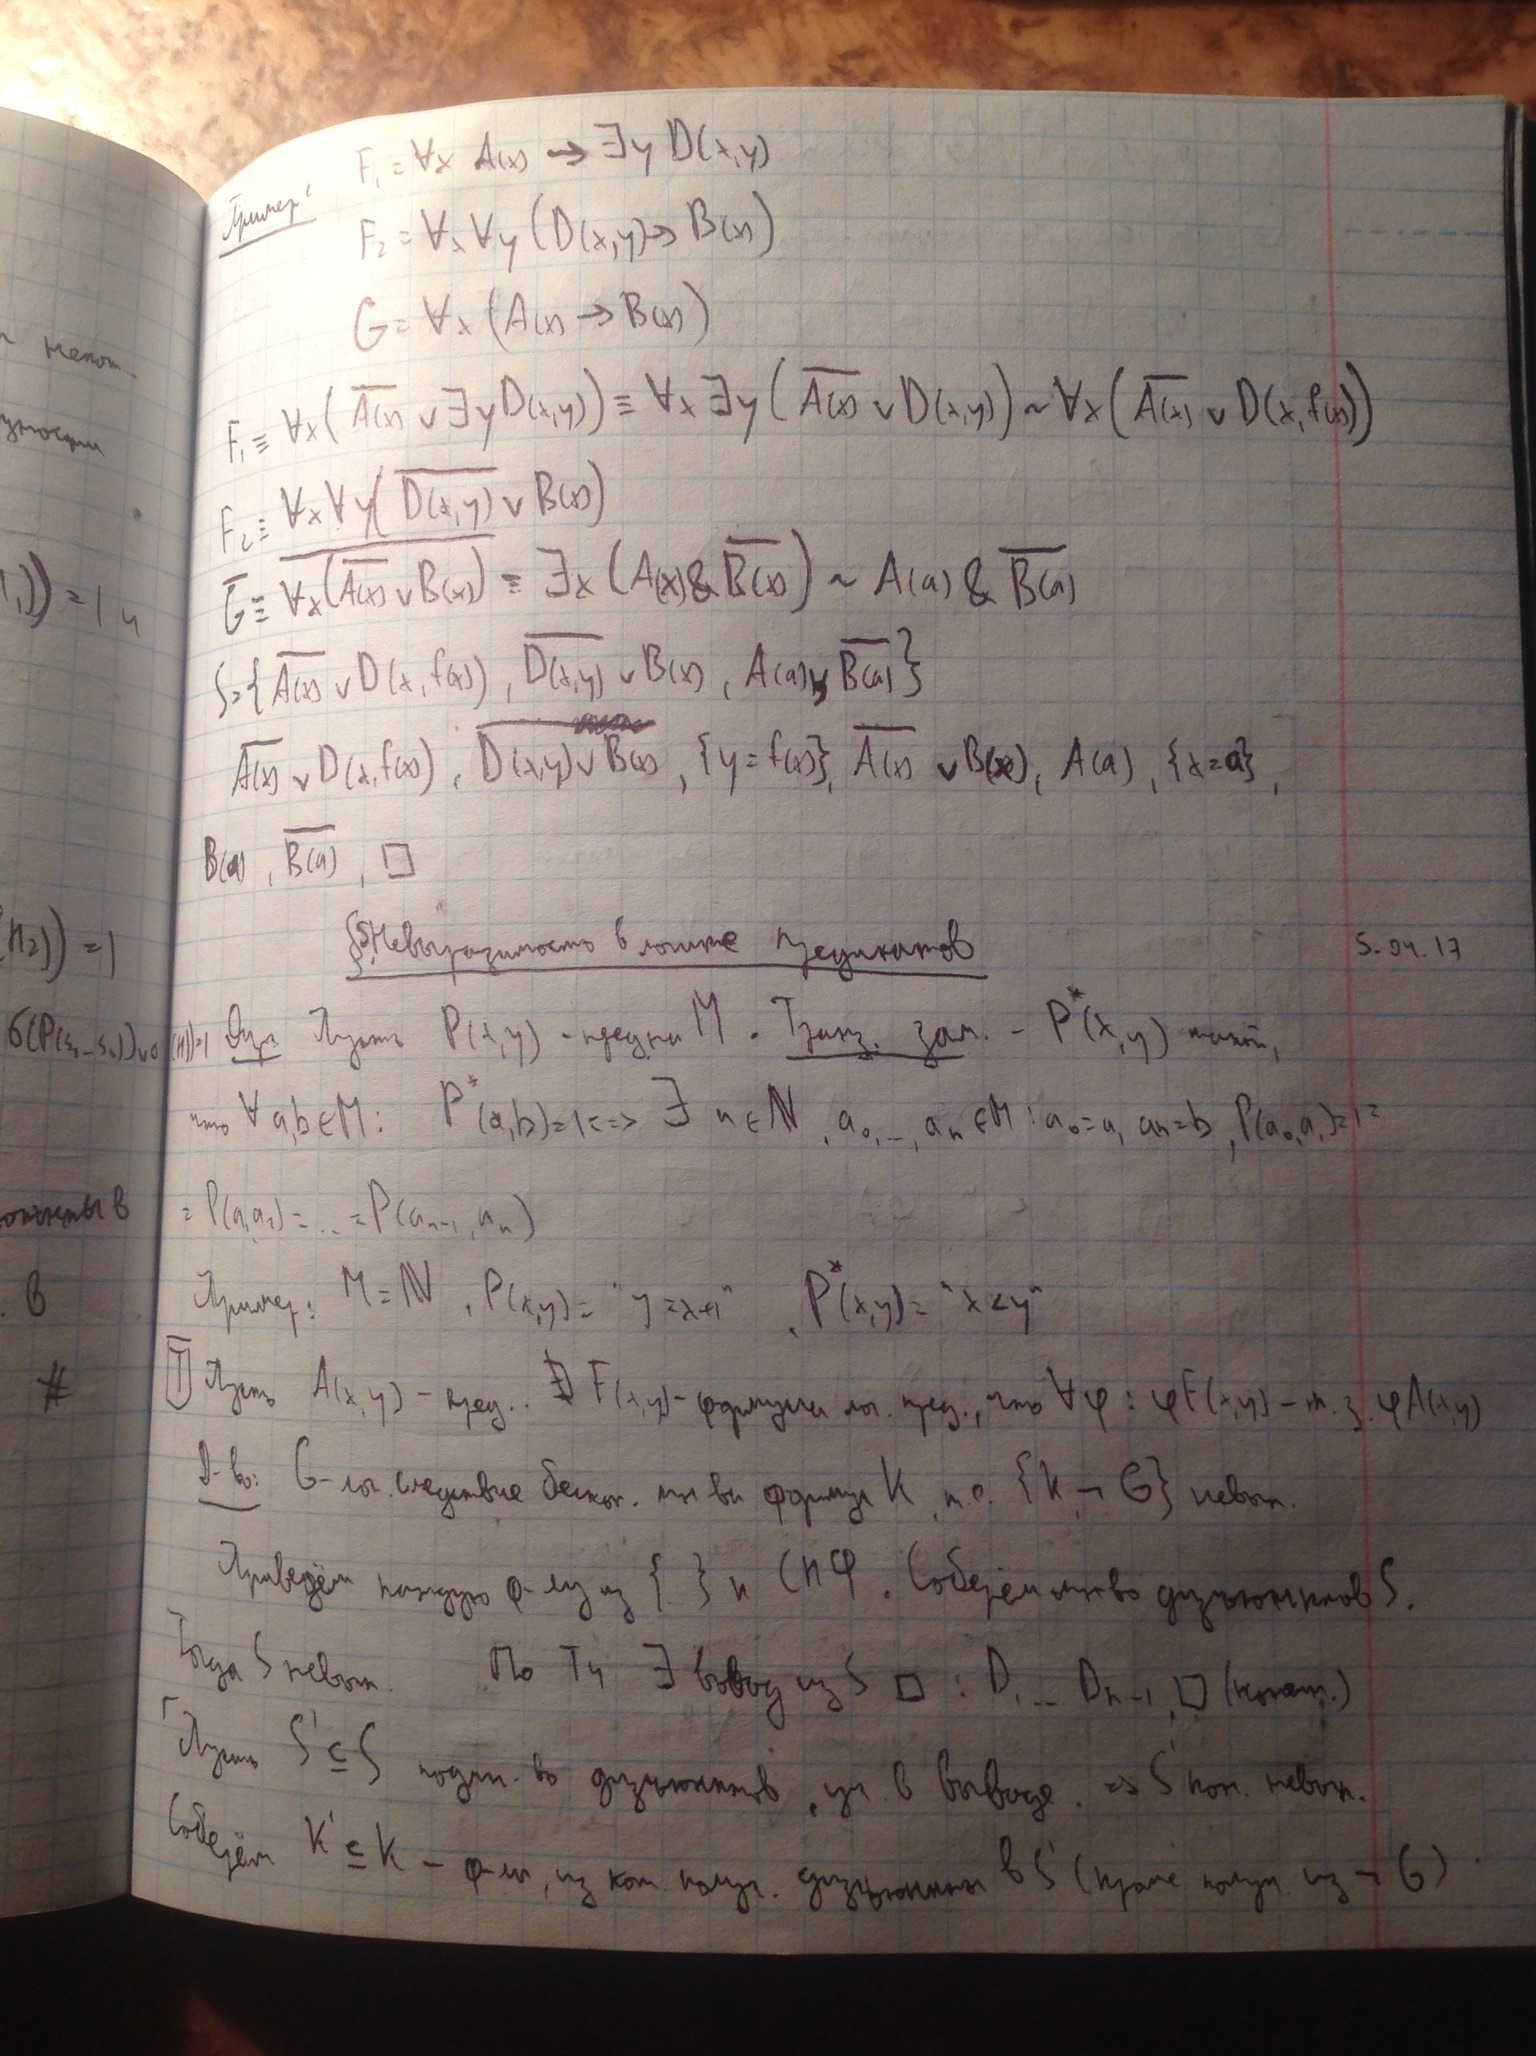 Пример:
F₁ = ∀x A(x) → ∃y D(x,y)
F₂ = ∀x ∀y (D(x,y) → B(x))
G = ∀x (A(x) → B(x))
F₁ ≡ ∀x (A̅(̅x̅)̅ ∨ ∃y D(x,y)) ≡ ∀x ∃y (A̅(̅x̅)̅ ∨ D(x,y)) ~ ∀x (A̅(̅x̅)̅ ∨ D(x, f(x)))
F₂ ≡ ∀x ∀y (D̅(̅x̅,̅y̅)̅ ∨ B(x))
G̅ ≡ ∀̅x̅(̅A̅(̅x̅)̅ ̅∨̅ ̅B̅(̅x̅)̅)̅ ≡ ∃x (A(x) & B̅(̅x̅)̅) ~ A(a) & B̅(̅a̅)̅
S = {A̅(̅x̅)̅ ∨ D(x, f(x)), D̅(̅x̅,̅y̅)̅ ∨ B(x), A(a), B̅(̅a̅)̅}
A̅(̅x̅)̅ ∨ D(x, f(x)), D̅(̅x̅,̅y̅)̅ ∨ B(x), {y = f(x)}, A̅(̅x̅)̅ ∨ B(x), A(a), {x = a},
B(a), B̅(̅a̅)̅, □
§5 Невыразимость в логике предикатов 5.04.17
Опр Пусть P(x,y) - пред на M. Транз. зам. - P*(x,y) такой,
что ∀ a,b ∈ M: P*(a,b)=1 <=> ∃ n ∈ ℕ, a₀, ..., aₙ ∈ M: a₀=a, aₙ=b, P(a₀,a₁)=1=
= P(a₁,a₂)= ... = P(aₙ₋₁, aₙ)
Пример: M = ℕ, P(x,y) = "y = x+1", P*(x,y) = "x < y"
T Пусть A(x,y) - пред. ∄ F(x,y) - формула лог. пред., что ∀φ: φF(x,y) - т.з. φA(x,y)
Д-во: G - лог. следствие беск. мн-ва формул K, т.е. {K, ¬G} невып.
Приведём каждую ф-лу из { } к СНФ. Соберём мн-во дизъюнктов S.
Тогда S невып. По Т4 ∃ вывод из S □: D₁ ... Dₙ₋₁, □ (конеч.)
Пусть S' ⊆ S подмн-во дизъюнктов, уч. в выводе. => S' кон. невып.
Соберём K' ⊆ K - ф-лы, из кот. получ. дизъюнкты в S' (кроме получ. из ¬G)